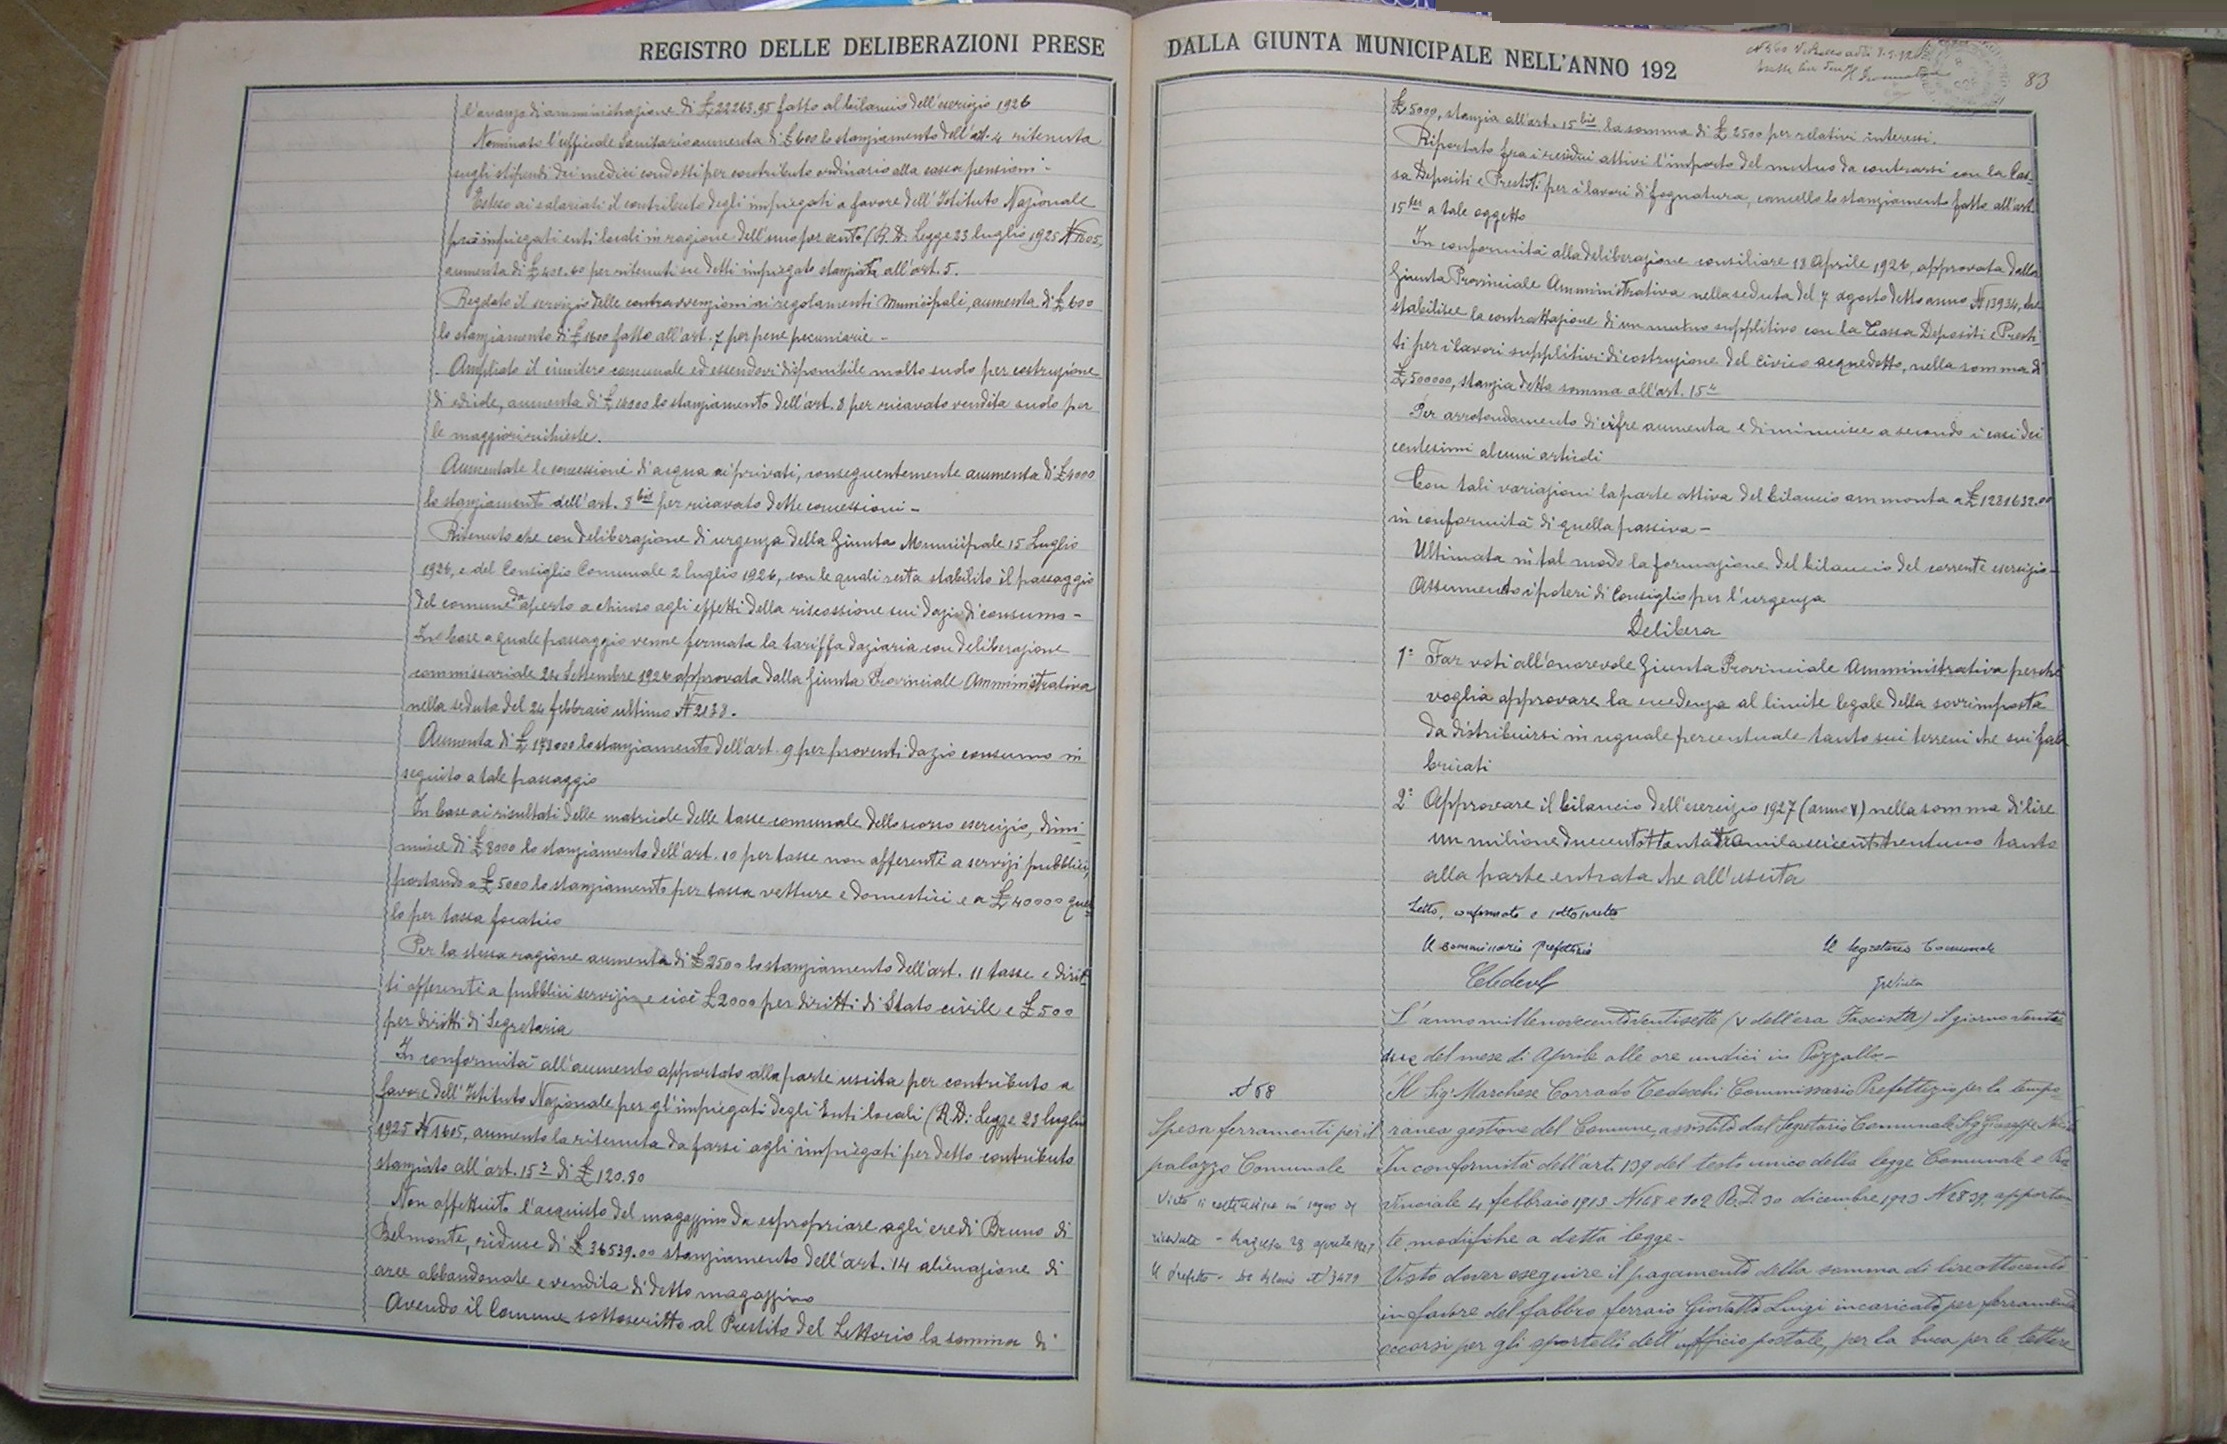 REGISTRO DELLE DELIBERAZIONI PRESE
l'avanzo di amministrazione di £ 22263.95 fatto al bilancio dell'esercizio 1926
Nominato l'ufficiale Sanitario aumenta di £ 600 lo stanziamento dell'art. 4 ritenuta
sugli stipendi dei medici condotti per contributo ordinario alla cassa pensioni -
Esteso ai salariati il contributo degli impiegati a favore dell'Istituto Nazionale
pro impiegati enti locali in ragione dell'uno per cento (R. D. Legge 23 luglio 1925 N 1605,
aumenta di £ per ritenuti su detti impiegato stanziata all'art. 5.
Regolato il servizio delle contravvenzioni ai regolamenti Municipali, aumenta di £ 600
lo stanziamento di £ 1600 fatto all'art. 7 per pene pecuniarie -
Ampliato il cimitero comunale ed essendovi disponibile molto suolo per costruzione
di edicole, aumenta di £ lo stanziamento dell'art. 8 per ricavato vendita suolo per
le maggiori richieste.
Aumentate le concessioni di acqua ai privati, conseguentemente aumenta di £ 4000
lo stanziamento dell'art. 8 bis per ricavato dette concessioni -
Ritenuto che con deliberazione di urgenza della Giunta Municipale 15 Luglio
1926, e del Consiglio Comunale 2 luglio 1926, con le quali resta stabilito il passaggio
del comune da aperto a chiuso agli effetti della riscossione sui dazio di consumo -
In base a quale passaggio venne fermata la tariffa daziaria con deliberazione
commissariale 24 Settembre 1926 approvata dalla Giunta Provinciale Amministrativa
nella seduta del 24 febbraio ultimo N 2138.
Aumenta di £ 173000 lo stanziamento dell'art. 9 per proventi dazio consumo in
seguito a tale passaggio
In base ai risultati delle matricole delle tasse comunale dello scorso esercizio, dimi-
nuisce di £ 8000 lo stanziamento dell'art. 10 per tasse non afferenti a servizi pubblici,
portando a £ 5000 lo stanziamento per tassa vetture e domestici e a £ 40000 quel
lo per tassa focatico
Per la stessa ragione aumenta di £ 2500 lo stanziamento dell'art. 11 tasse e dirit
ti afferenti a pubblici servizi e cioè £ 2000 per diritti di Stato civile e £ 500
per diritti di Segreteria
In conformità all'aumento apportato alla parte uscita per contributo a
favore dell'Istituto Nazionale per gl'impiegati degli Enti locali (R.D: Legge 23 luglio
1925 N 1605, aumenta la ritenuta da farsi agli impiegati per detto contributo
stanziato all'art. 15 2 di £ 120.80
Non effettuito l'acquisto del magazzino da espropriare agli eredi Bruno di
Belmonte, riduce di £ 36539.00 stanziamento dell'art. 14 alienazione di
aree abbandonate e vendita di detto magazzino
Avendo il Comune sottoscritto al Prestito del Littorio la somma di
DALLA GIUNTA MUNICIPALE NELL'ANNO 192
83
£ 5000, stanzia all'art. 15 bis la somma di £ 2500 per relativi interessi.
Riportato fra i residui attivi l'importo del mutuo da contrarsi con la Cas-
sa Depositi e Prestiti per i lavori di fognatura, cancella lo stanziamento fatto all'art.
15 ter a tale oggetto
In conformità alla deliberazione consiliare 18 Aprile 1926, approvata dalla
Giunta Provinciale Amministrativa nella seduta del 7 agosto detto anno N 13934, che
stabilisce la contrattazione di un mutuo supplitivo con la Cassa Depositi e Presti-
ti per i lavori supplitivi di costruzione del civico acquedotto, nella somma di
£ 500000, stanzia detta somma all'art. 15
Per arrotondamento di cifre aumenta e diminuisce a secondo i casi dei
centesimi alcuni articoli
Con tali variazioni la parte attiva del bilancio ammonta a £ 1281632.00
in conformità di quella passiva -
Ultimata in tal modo la formazione del bilancio del corrente esercizio -
Assumendo i poteri di Consiglio per l'urgenza
Delibera
1° Far voti all'onorevole Giunta Provinciale Amministrativa perchè
voglia approvare la eccedenza al limite legale della sovrimposta
da distribuirsi in uguale percentuale tanto sui terreni che sui fab
bricati
2° Approvare il bilancio dell'esercizio 1927 (anno V) nella somma di lire
un milione tanto
alla parte entrata che all'uscita
Letto, confermato e sottoscritto
Il commissario prefettizio
Il Segretario Comunale
L'anno millenovecentoventisette (V dell'era Fascista) il giorno venti
due del mese di Aprile alle ore undici in Pozzallo -
N 68
Spesa ferramenti per il
palazzo Comunale
Il Sig. Marchese Corrado Tedeschi Commissario Prefettizio per la tempo
ranea gestione del Comune, assistito dal Segretario Comunale Sig Giuseppe
In conformità dell'art. 139 del testo unico della legge Comunale e Pro
vinciale 4 febbraio 1913 N 148 e 102 R. D. 30 dicembre 1923 N 2839 apportan
te modifiche a detta legge -
Visto si restituisce in segno di
ricevuta - Ragusa 28 aprile 1927
Il Prefetto - N 3479
Visto dover eseguire il pagamento della somma di lire ottocento
in favore del fabbro ferraio Luigi incaricato per ferramenti
occorsi per gli sportelli dell'ufficio postale, per la buca per le lettere